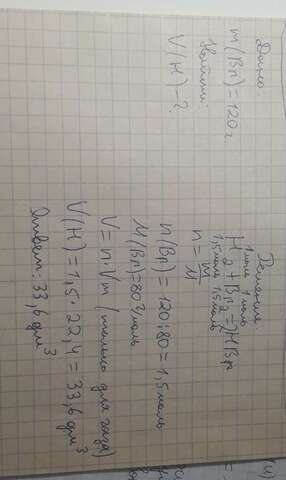 Дано:
m(Br)=120г
Найти:
V(H)-?
Решение
1моль 1моль
H2+Br2=2HBr
1,5моль 1,5моль
n=m/M
n(Br)=120:80=1,5моль
M(Br)=80г/моль
V=n·Vm (только для газа)
V(H)=1,5·22,4=33,6дм³
Ответ: 33,6дм³